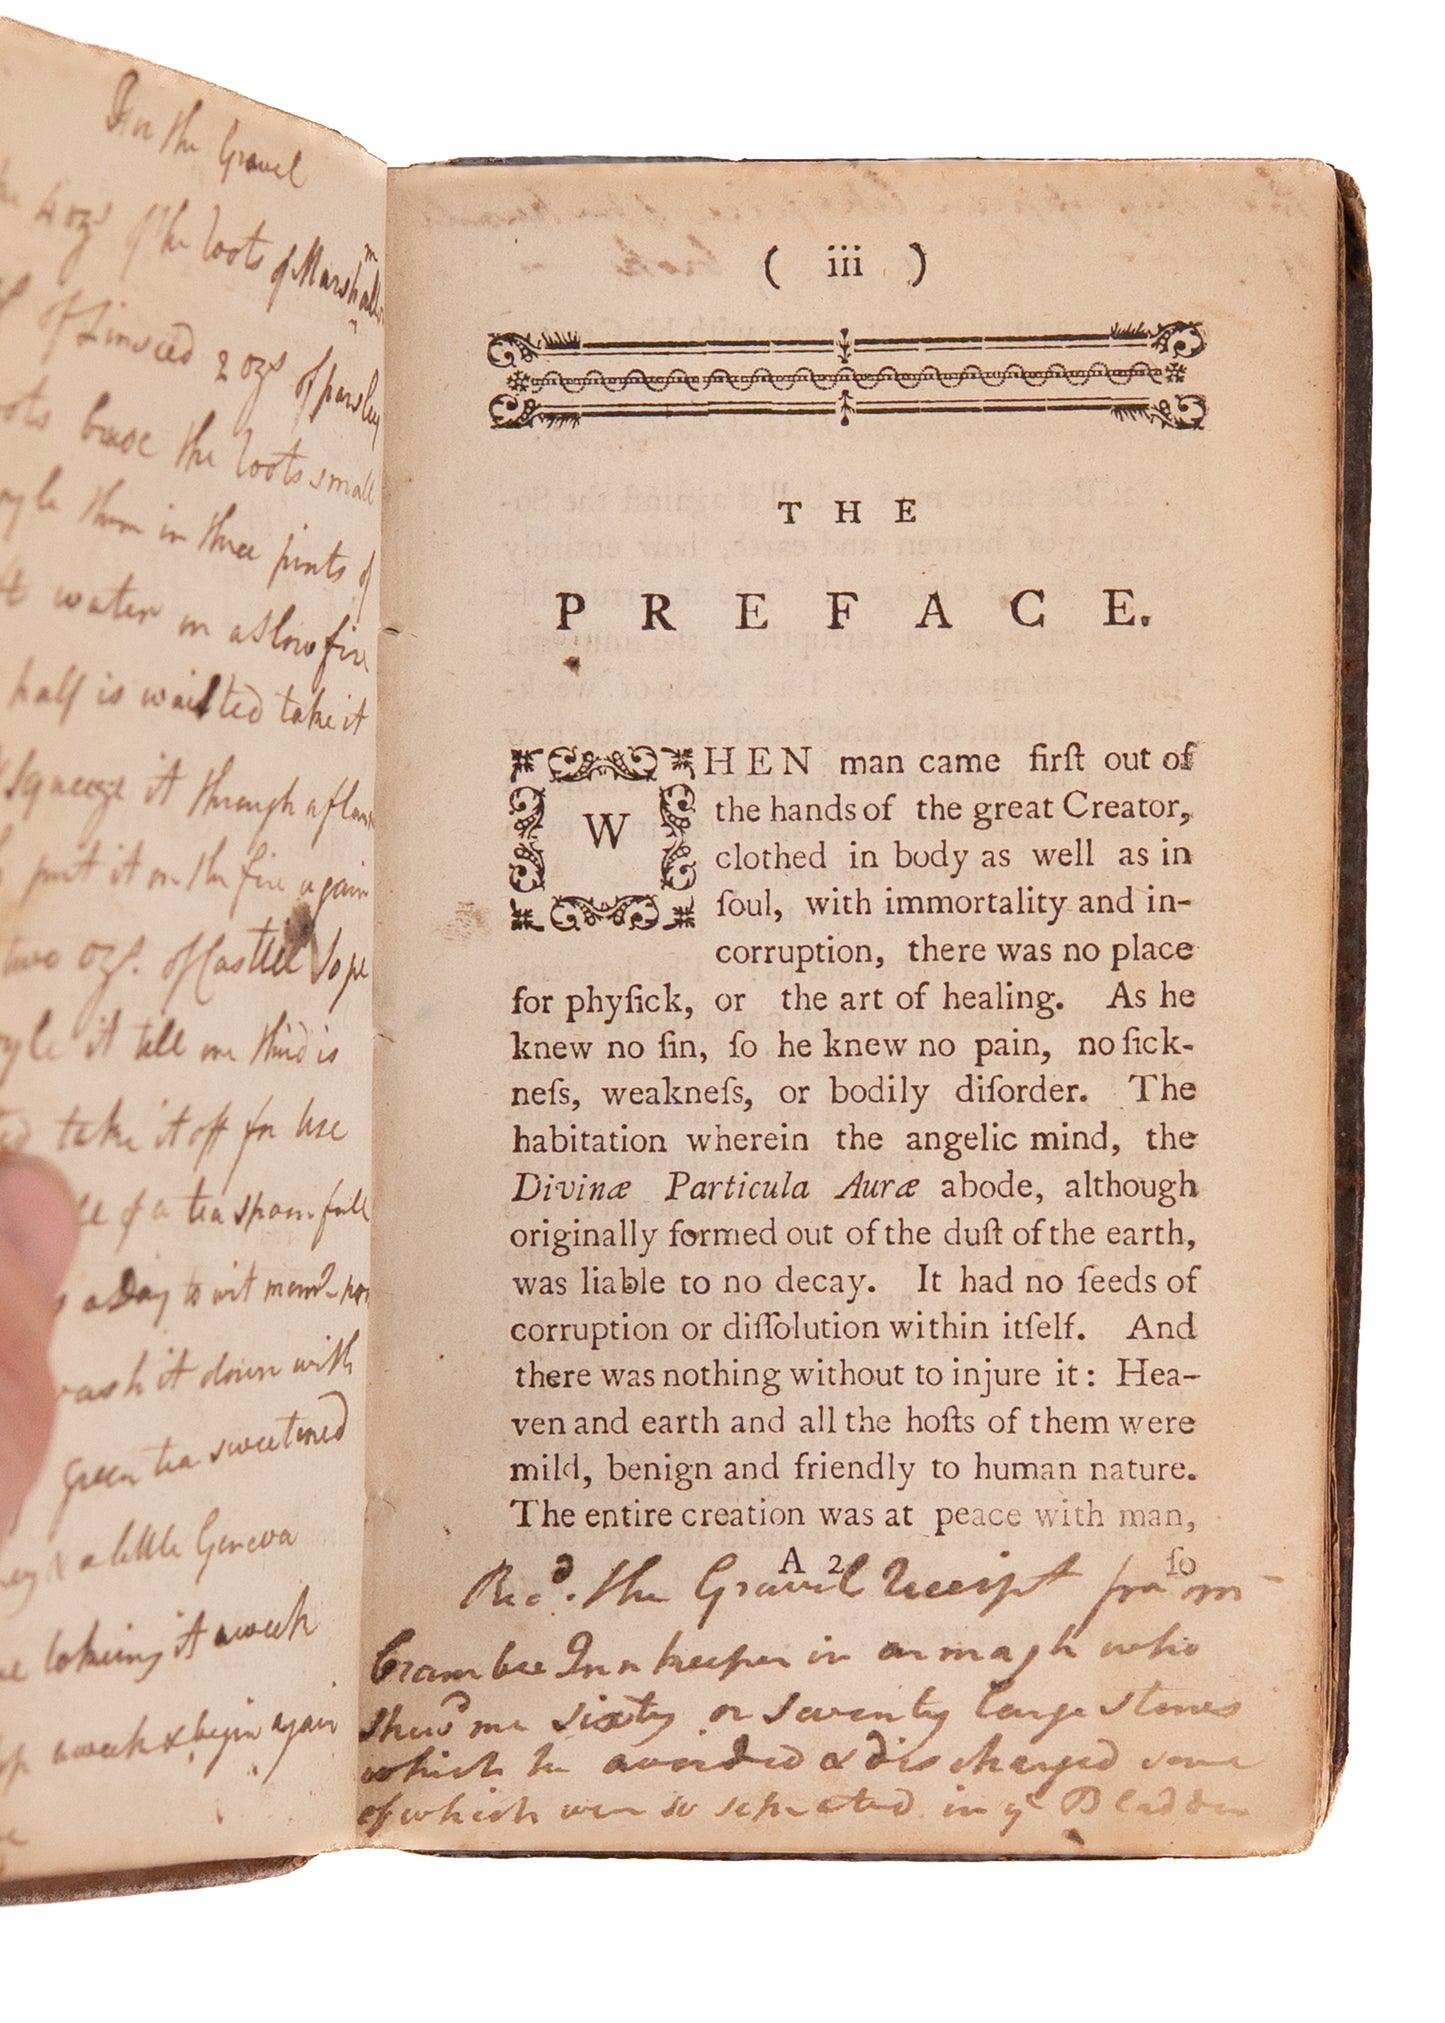 For the Gravel
4 ozs of the roots of Marshmall
of Linseed 2 ozs of parsley
bruse the roots small
them in three pints of
water on a slow fire
half is waisted take it
squeeze it through a flan
put it on the fire again
two ozs. of Castlel Sope
it till one third is
take it off for use
of a tea spoon full
a Day to wit morn & noo
wash it down with
green tea sweetened
& a little Geneva
takeing it a week
a week & begin again
( iii )
THE
PREFACE.
WHEN man came firſt out of
the hands of the great Creator,
clothed in body as well as in
ſoul, with immortality and in-
corruption, there was no place
for phyſick, or the art of healing. As he
knew no ſin, ſo he knew no pain, no ſick-
neſs, weakneſs, or bodily diſorder. The
habitation wherein the angelic mind, the
Divinæ Particula Auræ abode, although
originally formed out of the duſt of the earth,
was liable to no decay. It had no ſeeds of
corruption or diſſolution within itſelf. And
there was nothing without to injure it: Hea-
ven and earth and all the hoſts of them were
mild, benign and friendly to human nature.
The entire creation was at peace with man,
A 2 ſo
Recd. the Gravel Receipt from
Crambee Inn keeper in armagh who
shewd me sixty or seventy large stones
which he avoided & discharged some
of which were so in ye Bladder